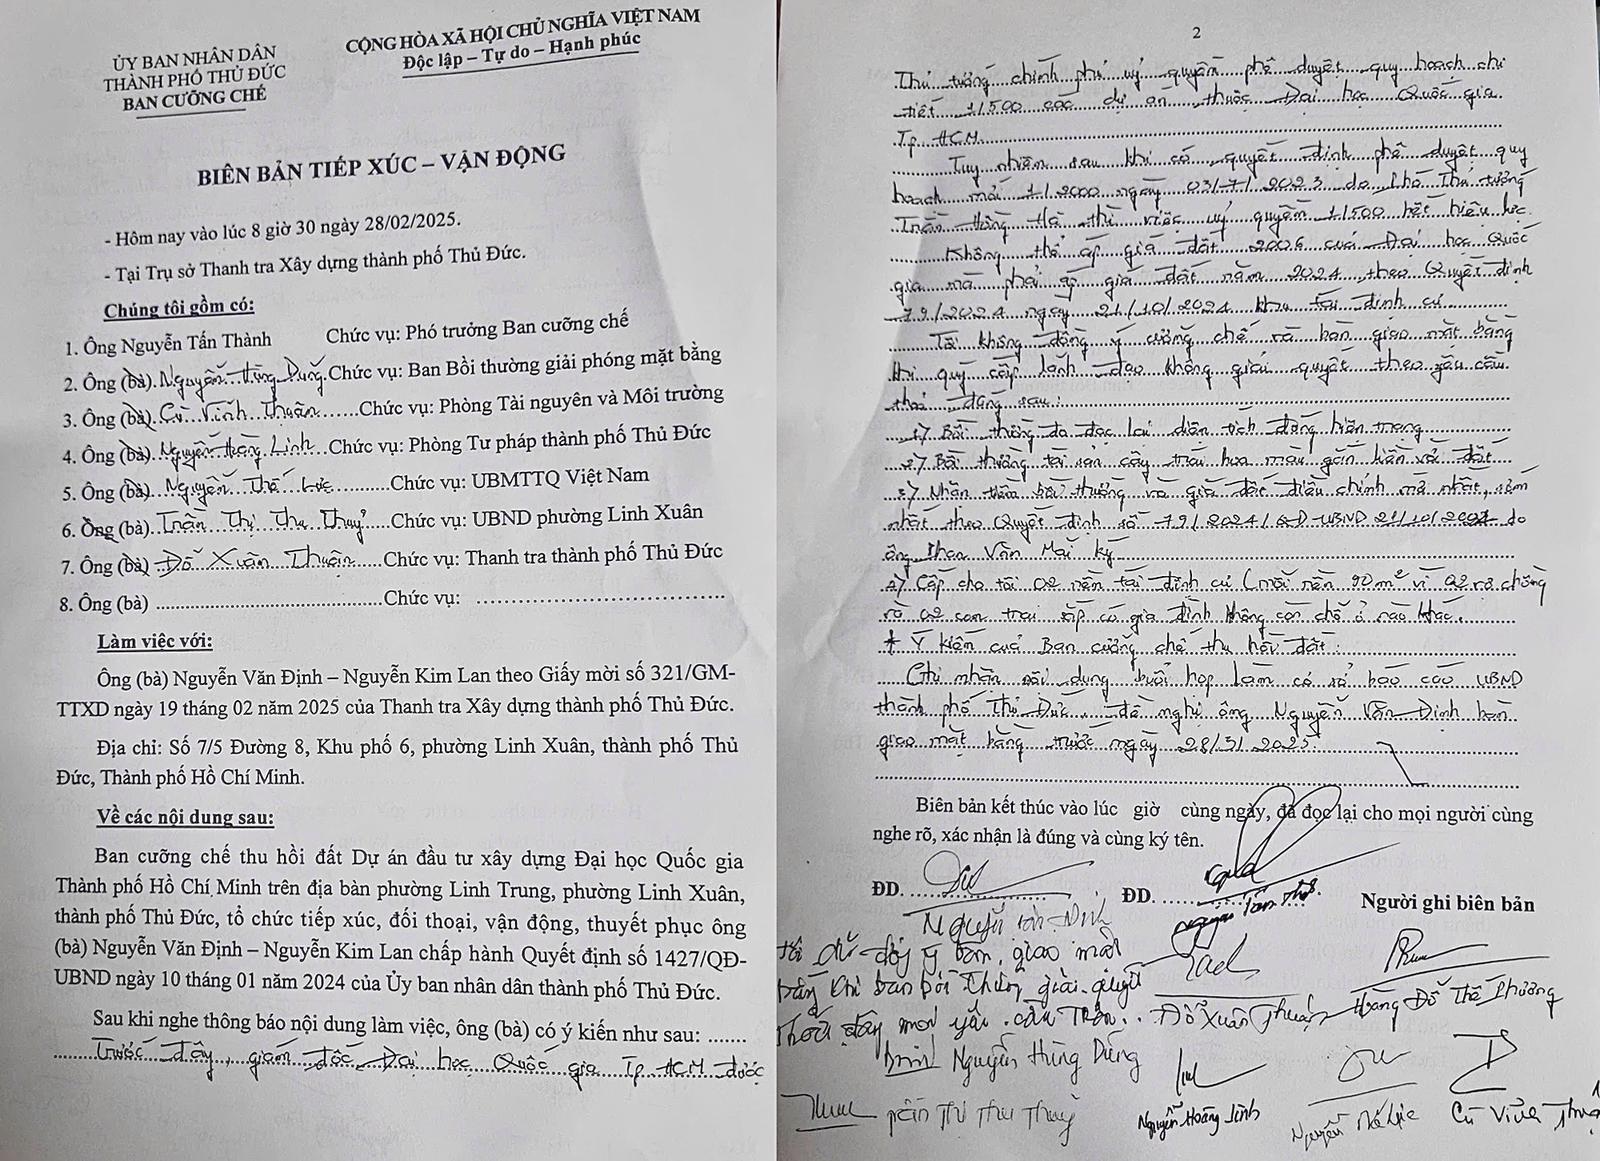 ỦY BAN NHÂN DÂN
THÀNH PHỐ THỦ ĐỨC
BAN CƯỠNG CHẾ
CỘNG HÒA XÃ HỘI CHỦ NGHĨA VIỆT NAM
Độc lập – Tự do – Hạnh phúc
BIÊN BẢN TIẾP XÚC – VẬN ĐỘNG
- Hôm nay vào lúc 8 giờ 30 ngày 28/02/2025.
- Tại Trụ sở Thanh tra Xây dựng thành phố Thủ Đức.
Chúng tôi gồm có:
1. Ông Nguyễn Tấn Thành Chức vụ: Phó trưởng Ban cưỡng chế
2. Ông (bà). Nguyễn Hùng Dung. Chức vụ: Ban Bồi thường giải phóng mặt bằng
3. Ông (bà). Cù Vĩnh Thuận ......Chức vụ: Phòng Tài nguyên và Môi trường
4. Ông (bà). Nguyễn Hoàng Linh. Chức vụ: Phòng Tư pháp thành phố Thủ Đức
5. Ông (bà)... Nguyễn Thế Lực ..........Chức vụ: UBMTTQ Việt Nam
6. Ông (bà). Trần Thị Thu Thuỷ ....Chức vụ: UBND phường Linh Xuân
7. Ông (bà) .Đỗ Xuân Thuận .....Chức vụ: Thanh tra thành phố Thủ Đức
8. Ông (bà) ..........................................Chức vụ: ..........................................
Làm việc với:
Ông (bà) Nguyễn Văn Định – Nguyễn Kim Lan theo Giấy mời số 321/GM-
TTXD ngày 19 tháng 02 năm 2025 của Thanh tra Xây dựng thành phố Thủ Đức.
Địa chỉ: Số 7/5 Đường 8, Khu phố 6, phường Linh Xuân, thành phố Thủ
Đức, Thành phố Hồ Chí Minh.
Về các nội dung sau:
Ban cưỡng chế thu hồi đất Dự án đầu tư xây dựng Đại học Quốc gia
Thành phố Hồ Chí Minh trên địa bàn phường Linh Trung, phường Linh Xuân,
thành phố Thủ Đức, tổ chức tiếp xúc, đối thoại, vận động, thuyết phục ông
(bà) Nguyễn Văn Định – Nguyễn Kim Lan chấp hành Quyết định số 1427/QĐ-
UBND ngày 10 tháng 01 năm 2024 của Ủy ban nhân dân thành phố Thủ Đức.
Sau khi nghe thông báo nội dung làm việc, ông (bà) có ý kiến như sau: .......
Trước đây, giám đốc Đại học Quốc gia Tp HCM được
2
Thủ tướng chính phủ uỷ quyền phê duyệt quy hoạch chi
tiết 1/500 các dự án thuộc Đại học Quốc gia
Tp HCM
Tuy nhiên sau khi có quyết định phê duyệt quy
hoạch mới 1/2000 ngày 03/7/2023 do Phó Thủ tướng
Trần Hồng Hà thì việc uỷ quyền 1/500 hết hiệu lực.
Không thể áp giá đất 2006 của Đại học Quốc
gia mà phải áp giá đất năm 2024 theo Quyết định
79/2024 ngày 21/10/2024 khu tái định cư
Tôi không đồng ý cưỡng chế và bàn giao mặt bằng
khi quý cấp lãnh đạo không giải quyết theo yêu cầu
thoả đáng sau:
1) Bồi thường đo đạc lại diện tích đúng hiện trạng
2) Bồi thường tài sản cây trái hoa màu gắn liền với đất
3) Nhận tiền bồi thường và giá đất điều chỉnh mới nhất, sớm
nhất theo Quyết định số 79/2024/QĐ-UBND 21/10/2024 do
ông Phan Văn Mãi ký
4) Cấp cho tôi 02 nền tái định cư (mỗi nền 90m² vì 02 vợ chồng
và 02 con trai sắp có gia đình không còn chỗ ở nào khác.
+ Ý kiến của Ban cưỡng chế thu hồi đất:
Ghi nhận nội dung buổi họp làm cơ sở báo cáo UBND
thành phố Thủ Đức, đề nghị ông Nguyễn Văn Định bàn
giao mặt bằng trước ngày 28/3/2025.
Biên bản kết thúc vào lúc giờ cùng ngày, đã đọc lại cho mọi người cùng
nghe rõ, xác nhận là đúng và cùng ký tên.
ĐD. ĐD. Người ghi biên bản
Nguyễn Văn Định
Nguyễn Tấn Thành
tôi chỉ đồng ý bàn giao mặt
bằng khi ban bồi thường giải quyết
thỏa đáng mọi yêu cầu trên..
Đỗ Xuân Thuận
Hoàng Đỗ Thế Phương
Nguyễn Hùng Dũng
Trần Thị Thu Thuỷ
Nguyễn Hoàng Linh
Nguyễn Thế Lực
Cù Vĩnh Thuận